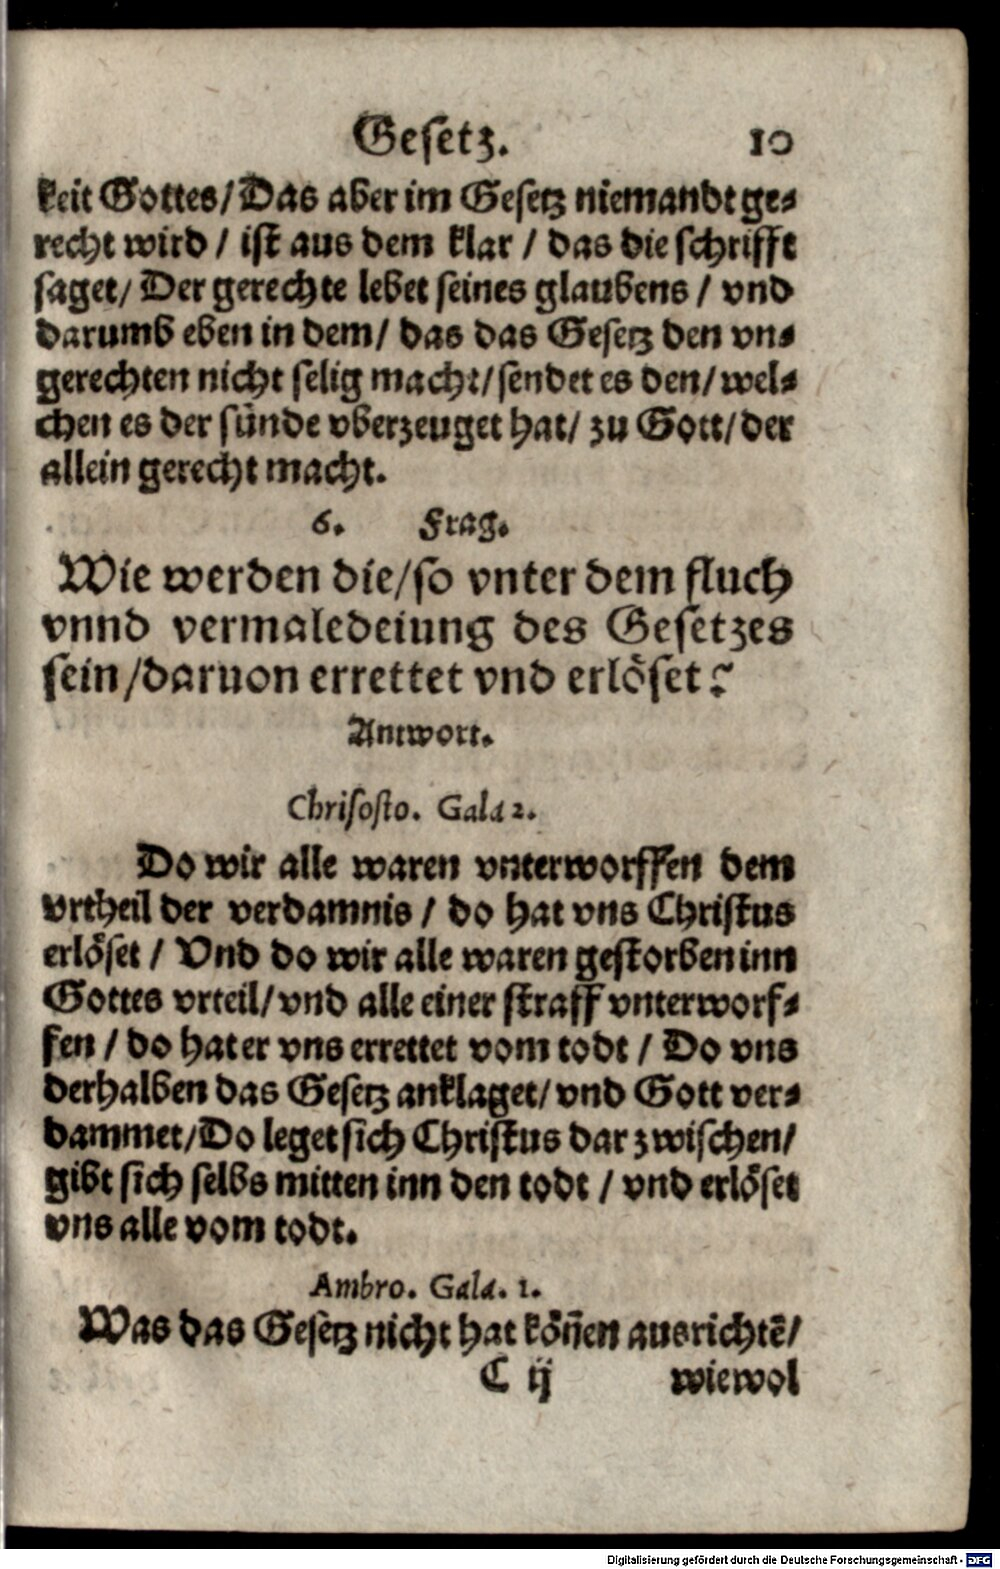 Gesetz. 10
keit Gottes/Das aber im Gesetz niemandt ge-
recht wird / ist aus dem klar / das die schrifft
saget/ Der gerechte lebet seines glaubens / vnd
darumb eben in dem/ das das Gesetz den vn-
gerechten nicht selig macht/sendet es den/wel-
chen es der sünde vberzeuget hat/ zu Gott/der
allein gerecht macht.
6. Frag.
Wie werden die/so vnter dem fluch
vnnd vermaledeiung des Gesetzes
sein/daruon errettet vnd erlöset?
Antwort.
Chrisosto. Gala 2.
Do wir alle waren vnterworffen dem
vrtheil der verdamnis / do hat vns Christus
erlöset / Vnd do wir alle waren gestorben inn
Gottes vrteil/vnd alle einer straff vnterworf-
fen / do hat er vns errettet vom todt / Do vns
derhalben das Gesetz anklaget/vnd Gott ver-
dammet/Do leget sich Christus dar zwischen/
gibt sich selbs mitten inn den todt / vnd erlöset
vns alle vom todt.
Ambro. Gala. 1.
Was das Gesetz nicht hat köñen ausrichtē/
C ij wiewol
Digitalisierung gefördert durch die Deutsche Forschungsgemeinschaft - DFG